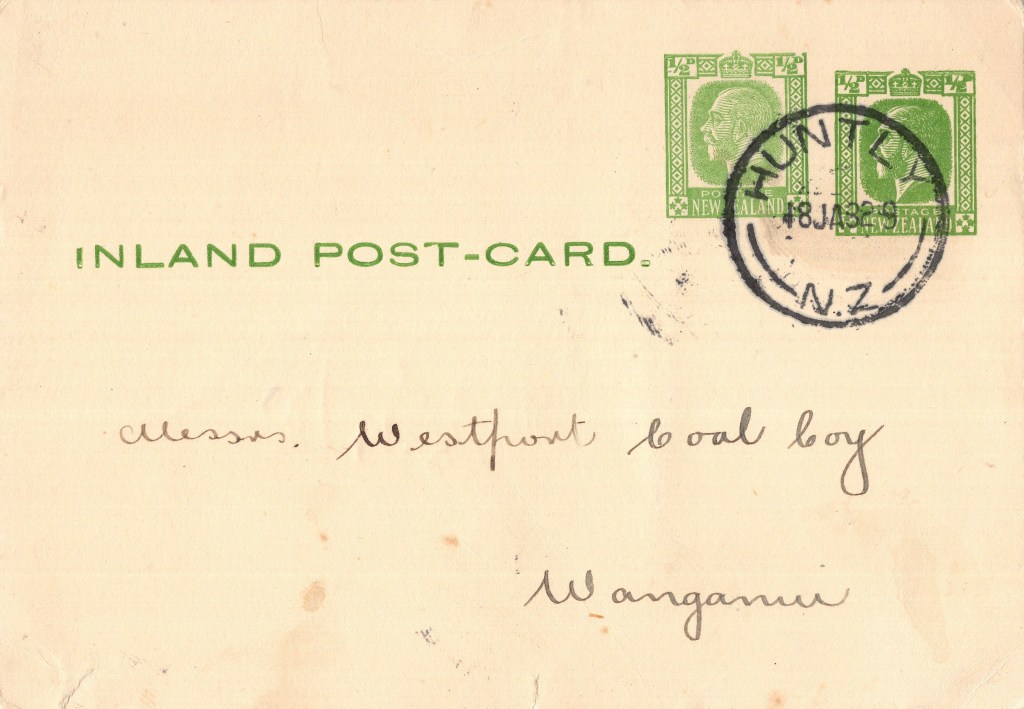 ½P ½P
POSTAGE
NEW ZEALAND
½P ½P
POSTAGE
NEW ZEALAND
HUNTLY
18JA32 9
N.Z
INLAND POST-CARD.
Messrs. Westport Coal Coy
Wanganui